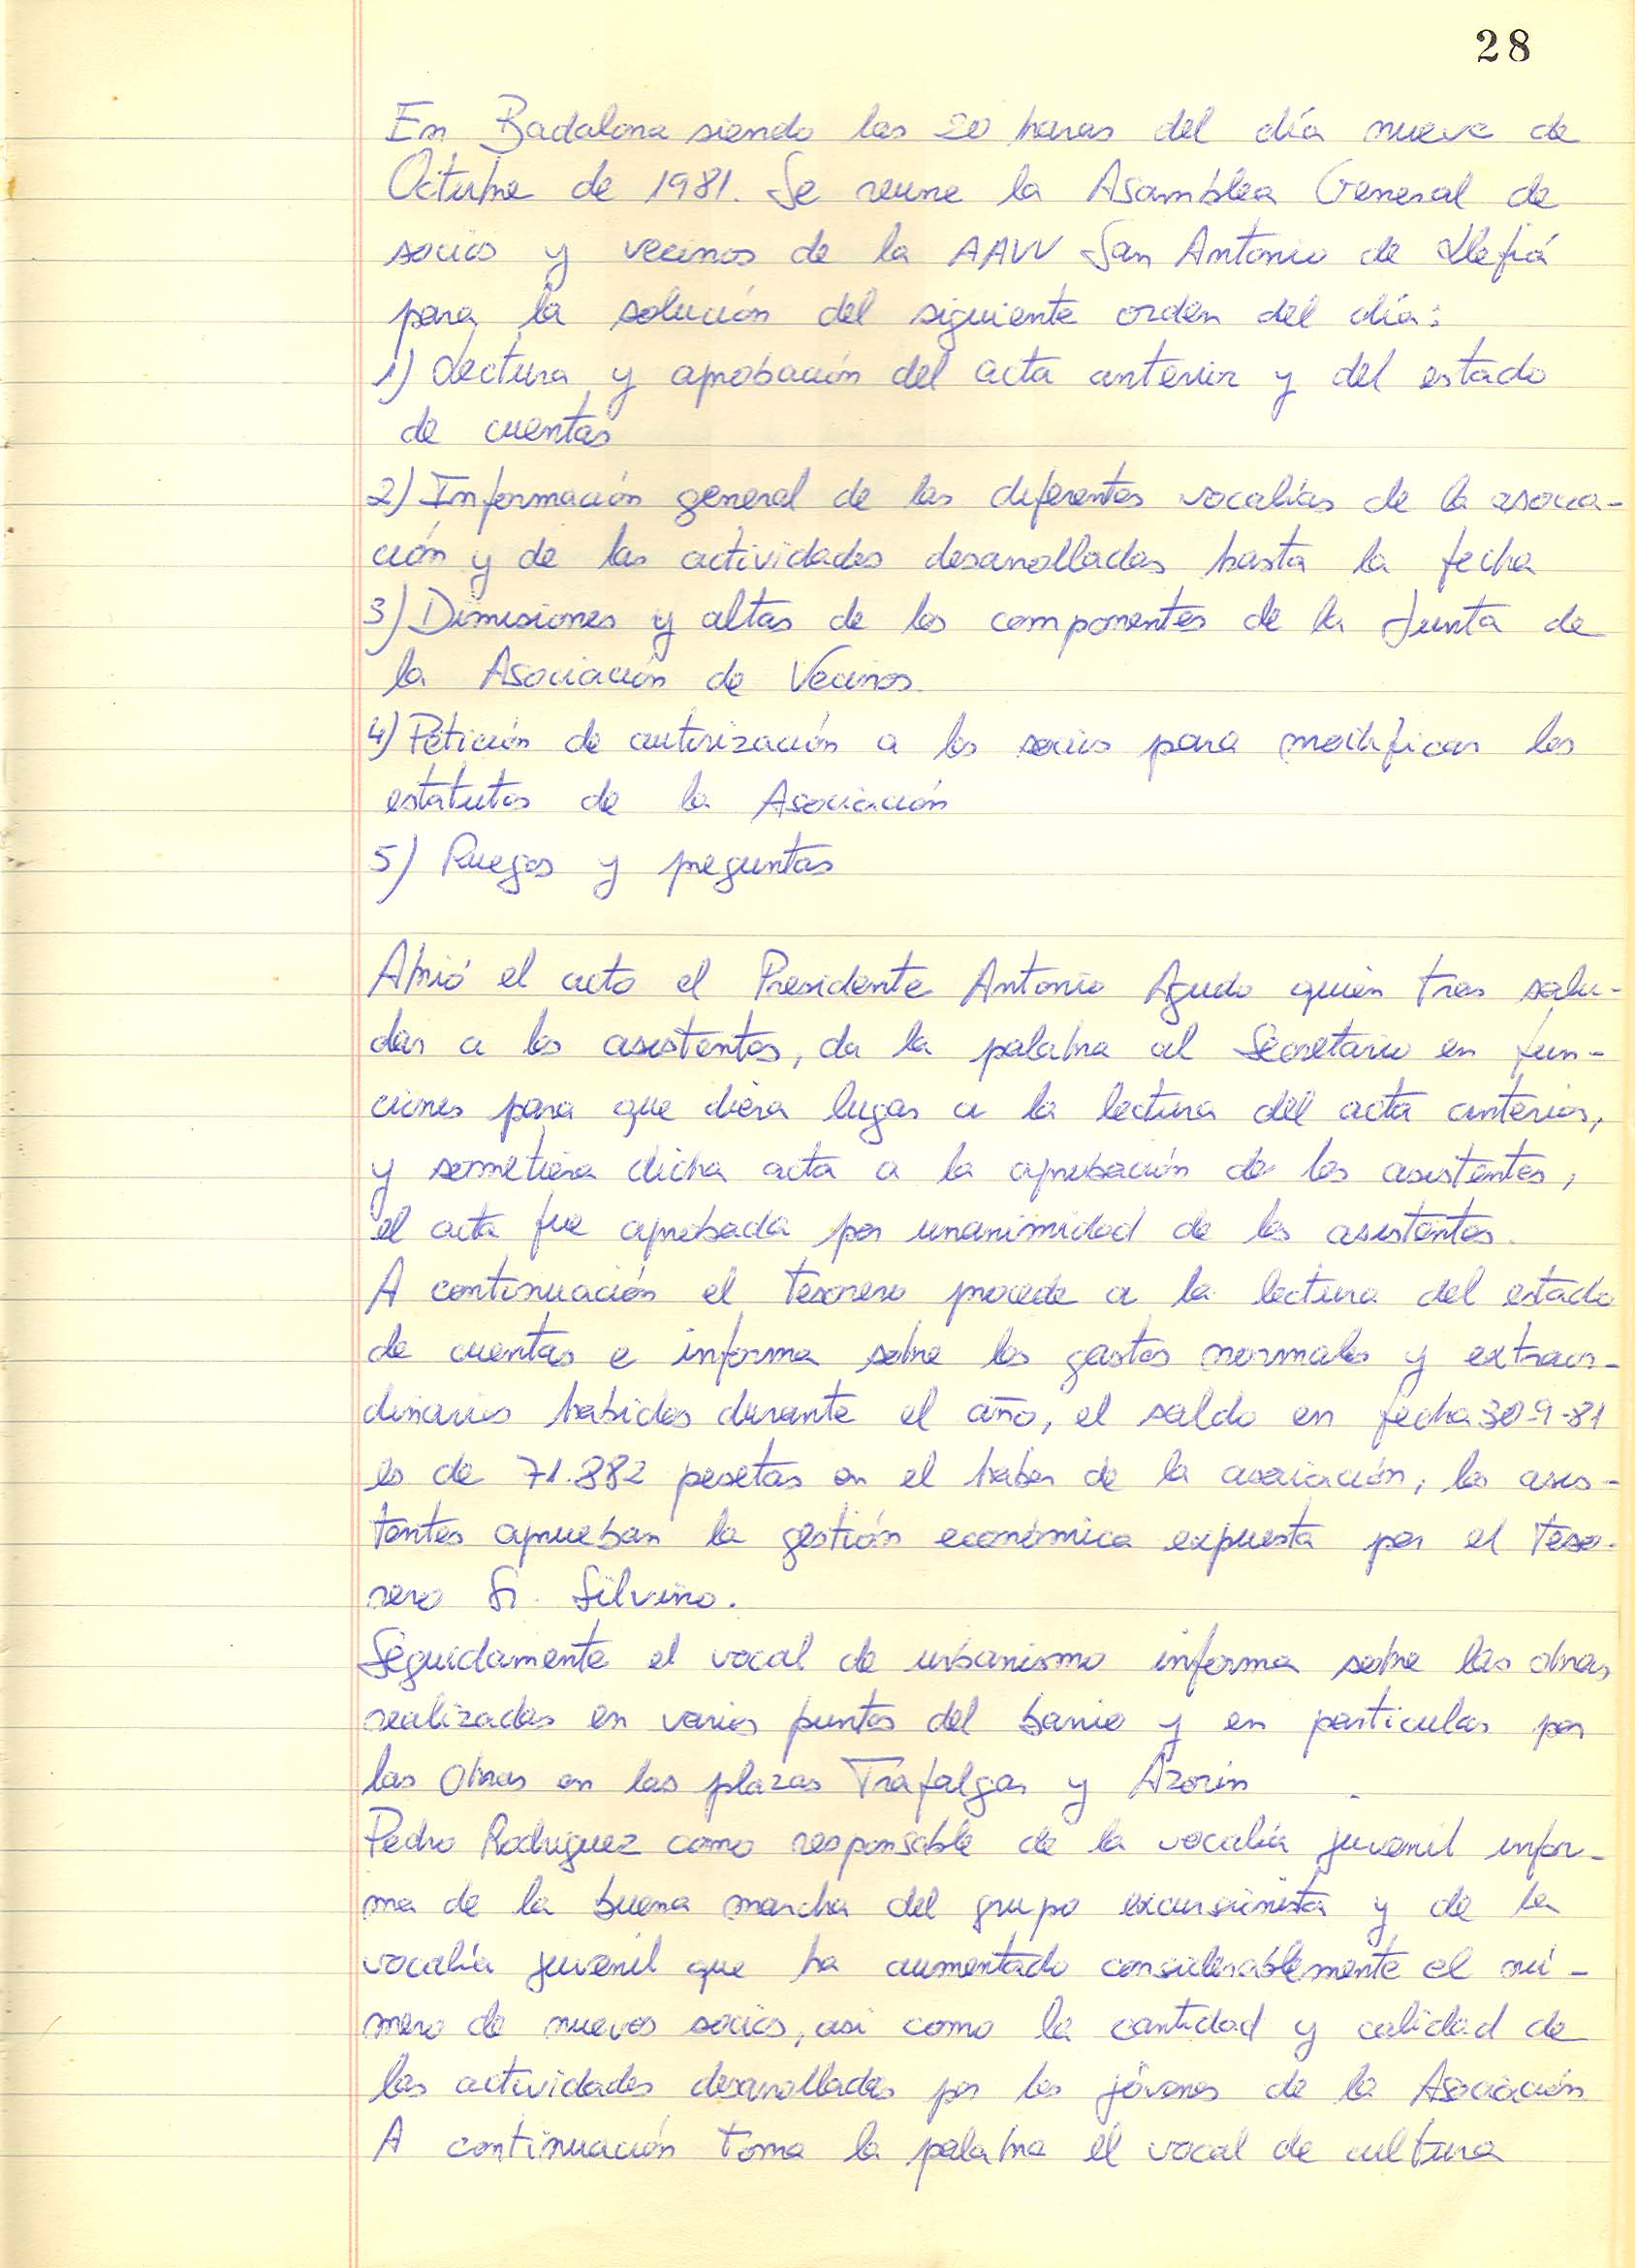 28
En Badalona siendo las 20 horas del día nueve de
Octubre de 1981. Se reune la Asamblea General de
socios y vecinos de la AAVV San Antonio de Llefiá
para la solución del siguiente orden del día:
1) Lectura y aprobación del acta anterior y del estado
de cuentas
2) Información general de las diferentes vocalías de la asocia-
ción y de las actividades desarrolladas hasta la fecha
3) Dimisiones y altas de los componentes de la Junta de
la Asociación de Vecinos.
4) Petición de autorización a los socios para modificar los
estatutos de la Asociación
5) Ruegos y preguntas
Abrió el acto el Presidente Antonio Agudo quien tras salu-
dar a los asistentes, da la palabra al Secretario en fun-
ciones para que diera lugar a la lectura del acta anterior,
y sometiera dicha acta a la aprobación de los asistentes,
el acta fue aprobada por unanimidad de los asistentes.
A continuación el tesorero procede a la lectura del estado
de cuentas e informa sobre los gastos normales y extraor-
dinarios habidos durante el año, el saldo en fecha 30-9-81
es de 71.882 pesetas en el haber de la asociación, los asis-
tentes aprueban la gestión económica expuesta por el teso-
rero Sr. Silvino.
Seguidamente el vocal de urbanismo informa sobre las obras
realizadas en varios puntos del barrio y en particular por
las obras en las plazas Trafalgar y Azorín
Pedro Rodriguez como responsable de la vocalía juvenil infor-
ma de la buena marcha del grupo excursionista y de la
vocalía juvenil que ha aumentado considerablemente el nú-
mero de nuevos socios, asi como la cantidad y calidad de
las actividades desarrolladas por los jóvenes de la Asociación
A continuación toma la palabra el vocal de cultura